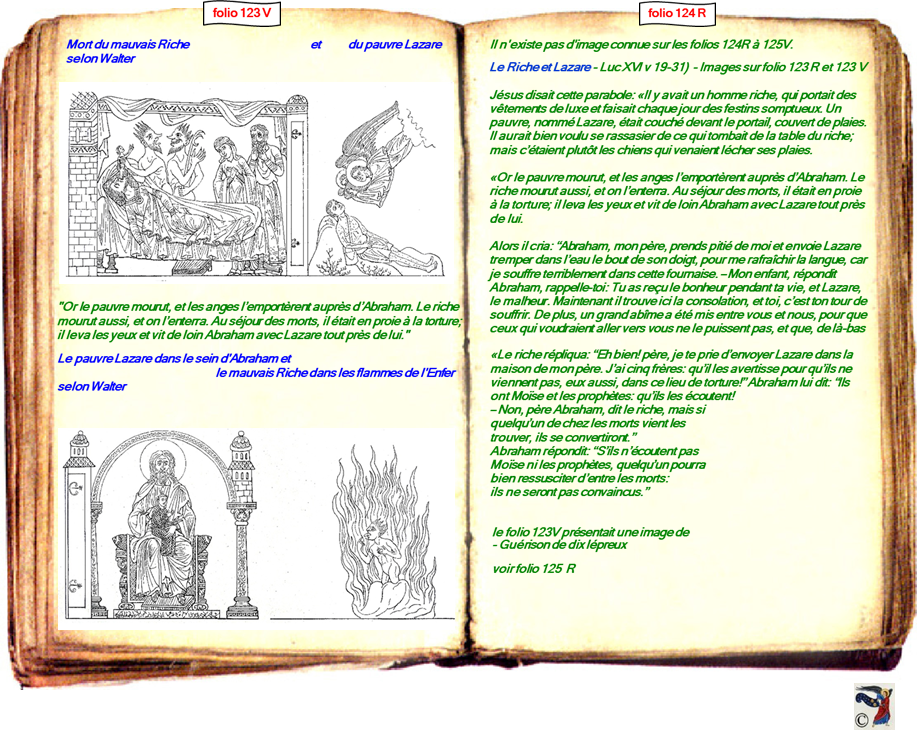 folio 123 V
Mort du mauvais Riche et du pauvre Lazare
selon Walter
"Or le pauvre mourut, et les anges l'emportèrent auprès d'Abraham. Le riche
mourut aussi, et on l'enterra. Au séjour des morts, il était en proie à la torture;
il leva les yeux et vit de loin Abraham avec Lazare tout près de lui."
Le pauvre Lazare dans le sein d'Abraham et
le mauvais Riche dans les flammes de l'Enfer
selon Walter
folio 124 R
Il n'existe pas d'image connue sur les folios 124R à 125V.
Le Riche et Lazare - Luc XVI v 19-31) - Images sur folio 123 R et 123 V
Jésus disait cette parabole: «Il y avait un homme riche, qui portait des
vêtements de luxe et faisait chaque jour des festins somptueux. Un
pauvre, nommé Lazare, était couché devant le portail, couvert de plaies.
Il aurait bien voulu se rassasier de ce qui tombait de la table du riche;
mais c'étaient plutôt les chiens qui venaient lécher ses plaies.
«Or le pauvre mourut, et les anges l'emportèrent auprès d'Abraham. Le
riche mourut aussi, et on l'enterra. Au séjour des morts, il était en proie
à la torture; il leva les yeux et vit de loin Abraham avec Lazare tout près
de lui.
Alors il cria: “Abraham, mon père, prends pitié de moi et envoie Lazare
tremper dans l'eau le bout de son doigt, pour me rafraîchir la langue, car
je souffre terriblement dans cette fournaise. – Mon enfant, répondit
Abraham, rappelle-toi: Tu as reçu le bonheur pendant ta vie, et Lazare,
le malheur. Maintenant il trouve ici la consolation, et toi, c'est ton tour de
souffrir. De plus, un grand abîme a été mis entre vous et nous, pour que
ceux qui voudraient aller vers vous ne le puissent pas, et que, de là-bas
«Le riche répliqua: “Eh bien! père, je te prie d'envoyer Lazare dans la
maison de mon père. J'ai cinq frères: qu'il les avertisse pour qu'ils ne
viennent pas, eux aussi, dans ce lieu de torture!” Abraham lui dit: “Ils
ont Moïse et les prophètes: qu'ils les écoutent!
– Non, père Abraham, dit le riche, mais si
quelqu'un de chez les morts vient les
trouver, ils se convertiront.”
Abraham répondit: “S'ils n'écoutent pas
Moïse ni les prophètes, quelqu'un pourra
bien ressusciter d'entre les morts:
ils ne seront pas convaincus.”
le folio 123V présentait une image de
- Guérison de dix lépreux
voir folio 125 R
©